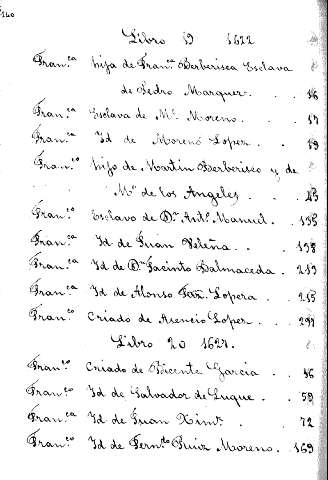 Libro 19 1622
Fran.ca hija de Fran.ca Berberisca Esclava
de Pedro Marquez . . 16
Fran.ca Esclava de M.l Moreno . . 17
Fran.ca Id de Moreno Lopez . . 19
Fran.co hijo de Martin Berberisco y de
M.a de los Angeles . . 43
Fran.co Esclavo de D.n Ant.o Manuel . 135
Fran.ca Id de Juan . . 138
Fran.ca Id de D.n Jacinto Balmaceda . 213
Fran.ca Id de Alonso Lopera . 215
Fran.co Criado de Asencio Lopez . . 291
Libro 20 1627.
Fran.co Criado de Vicente Garcia . . 46
Fran.co Id de Salvador de Luque . . 59
Fran.ca Id de Juan Xim.z . . 72
Fran.co Id de Fern.do Ruiz Moreno . 169